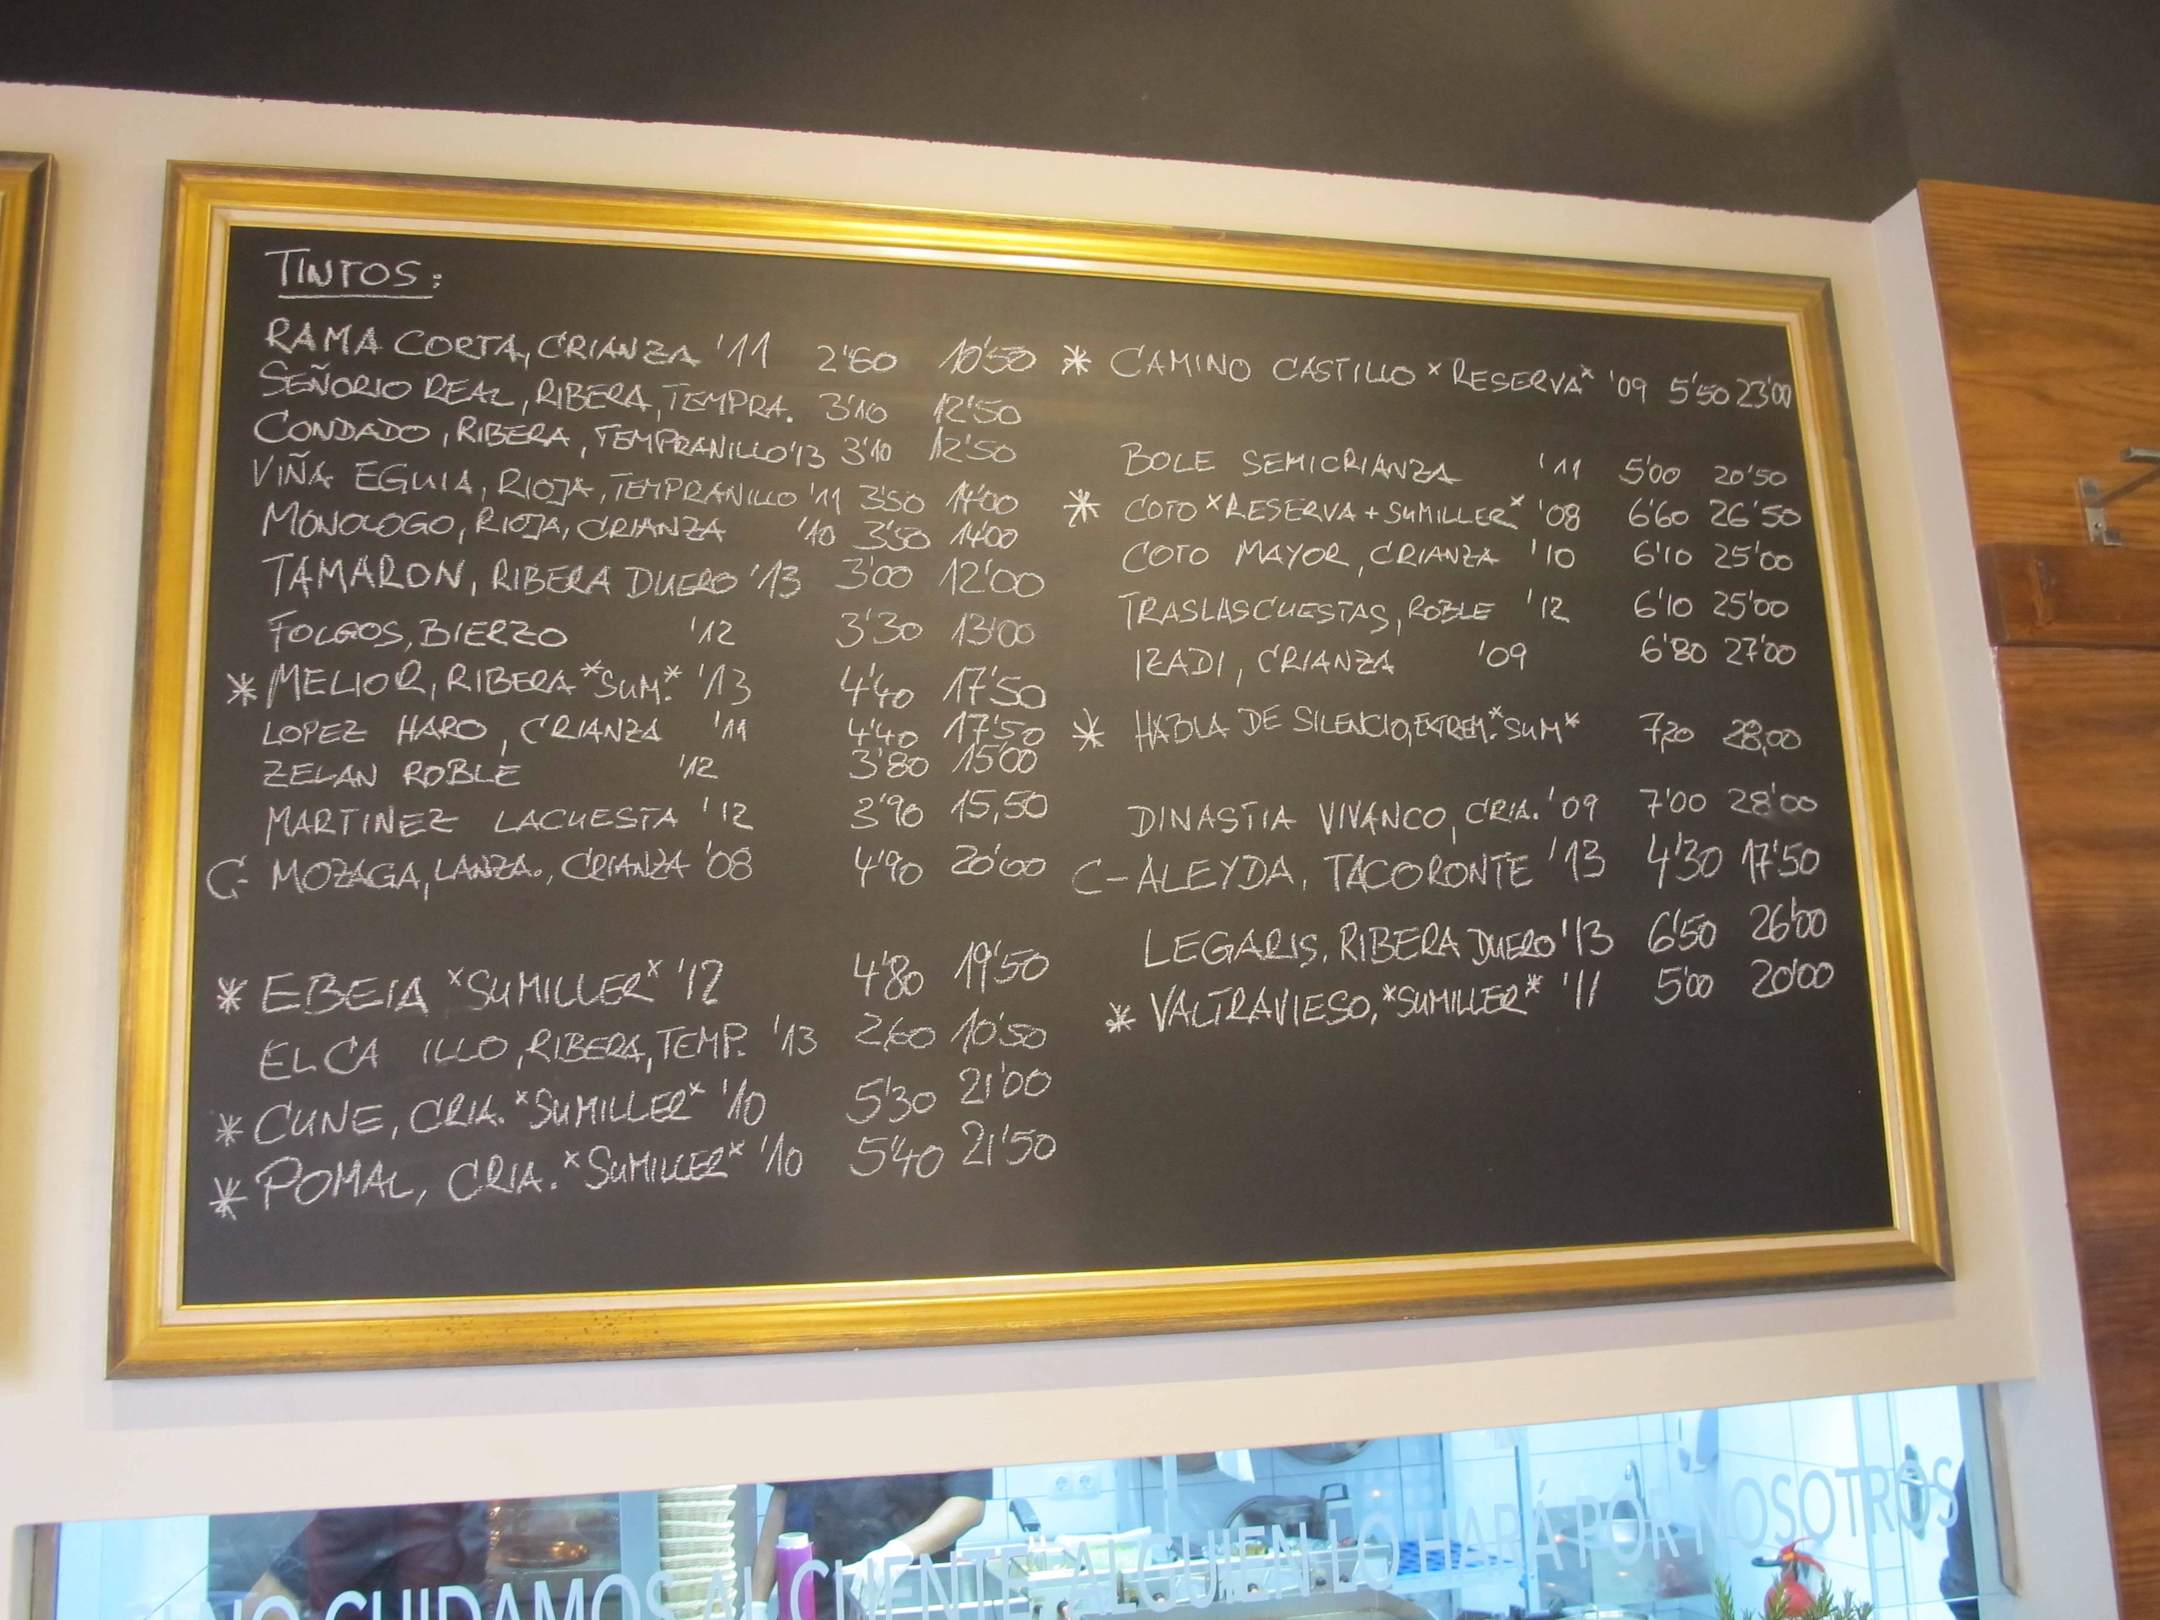 TINTOS:
RAMA CORTA, CRIANZA '11 2'60 10'50
SEÑORIO REAL, RIBERA, TEMPRA. 3'10 12'50
CONDADO, RIBERA, TEMPRANILLO '13 3'10 12'50
VIÑA EGUIA, RIOJA, TEMPRANILLO '11 3'50 14'00
MONOLOGO, RIOJA, CRIANZA '10 3'50 14'00
TAMARON, RIBERA DUERO '13 3'00 12'00
FOLGOS, BIERZO '12 3'30 13'00
* MELIOR, RIBERA *SUM.* '13 4'40 17'50
LOPEZ HARO, CRIANZA '11 4'40 17'50
ZELAN ROBLE '12 3'80 15'00
MARTINEZ LACUESTA '12 3'90 15,50
C- MOZAGA, LANZA., CRIANZA '08 4'90 20'00
* EBEIA *SUMILLER* '12 4'80 19'50
EL CA ILLO, RIBERA, TEMP. '13 2,60 10'50
* CUNE, CRIA. *SUMILLER* '10 5'30 21'00
* POMAL, CRIA. *SUMILLER* '10 5'40 21'50
* CAMINO CASTILLO *RESERVA* '09 5'50 23'00
BOLE SEMICRIANZA '11 5'00 20'50
* COTO *RESERVA + SUMILLER* '08 6'60 26'50
COTO MAYOR, CRIANZA '10 6'10 25'00
TRASLASCUESTAS, ROBLE '12 6'10 25'00
IZADI, CRIANZA '09 6'80 27'00
* HABLA DE SILENCIO, EXTREM. *SUM* 7,20 28,00
DINASTIA VIVANCO, CRIA. '09 7'00 28'00
C- ALEYDA, TACORONTE '13 4'30 17'50
LEGARIS, RIBERA DUERO '13 6'50 26'00
* VALTRAVIESO, *SUMILLER* '11 5'00 20'00
NO CUIDAMOS AL CLIENTE, ALGUIEN LO HARÁ POR NOSOTROS